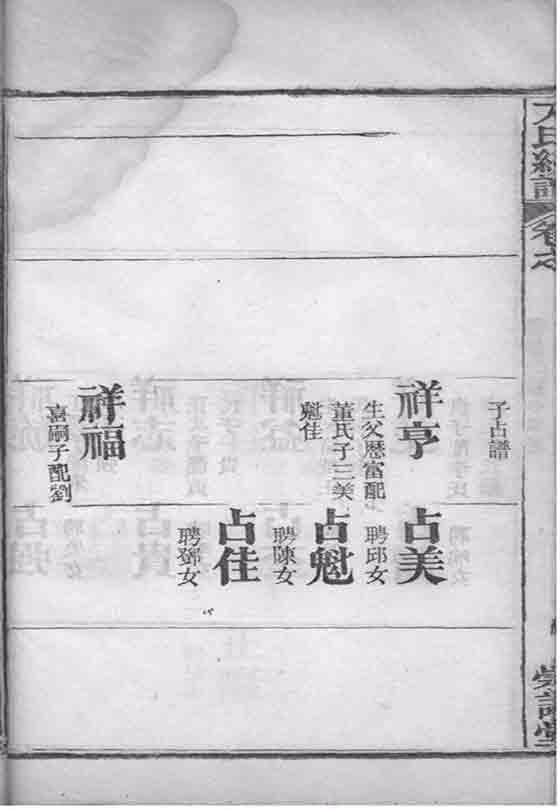 子占譜
祥亨
生父歷富配
董氏子三美
魁佳
祥福
喜嗣子配劉
占美
聘邱女
占魁
聘陳女
占佳
聘鄧女